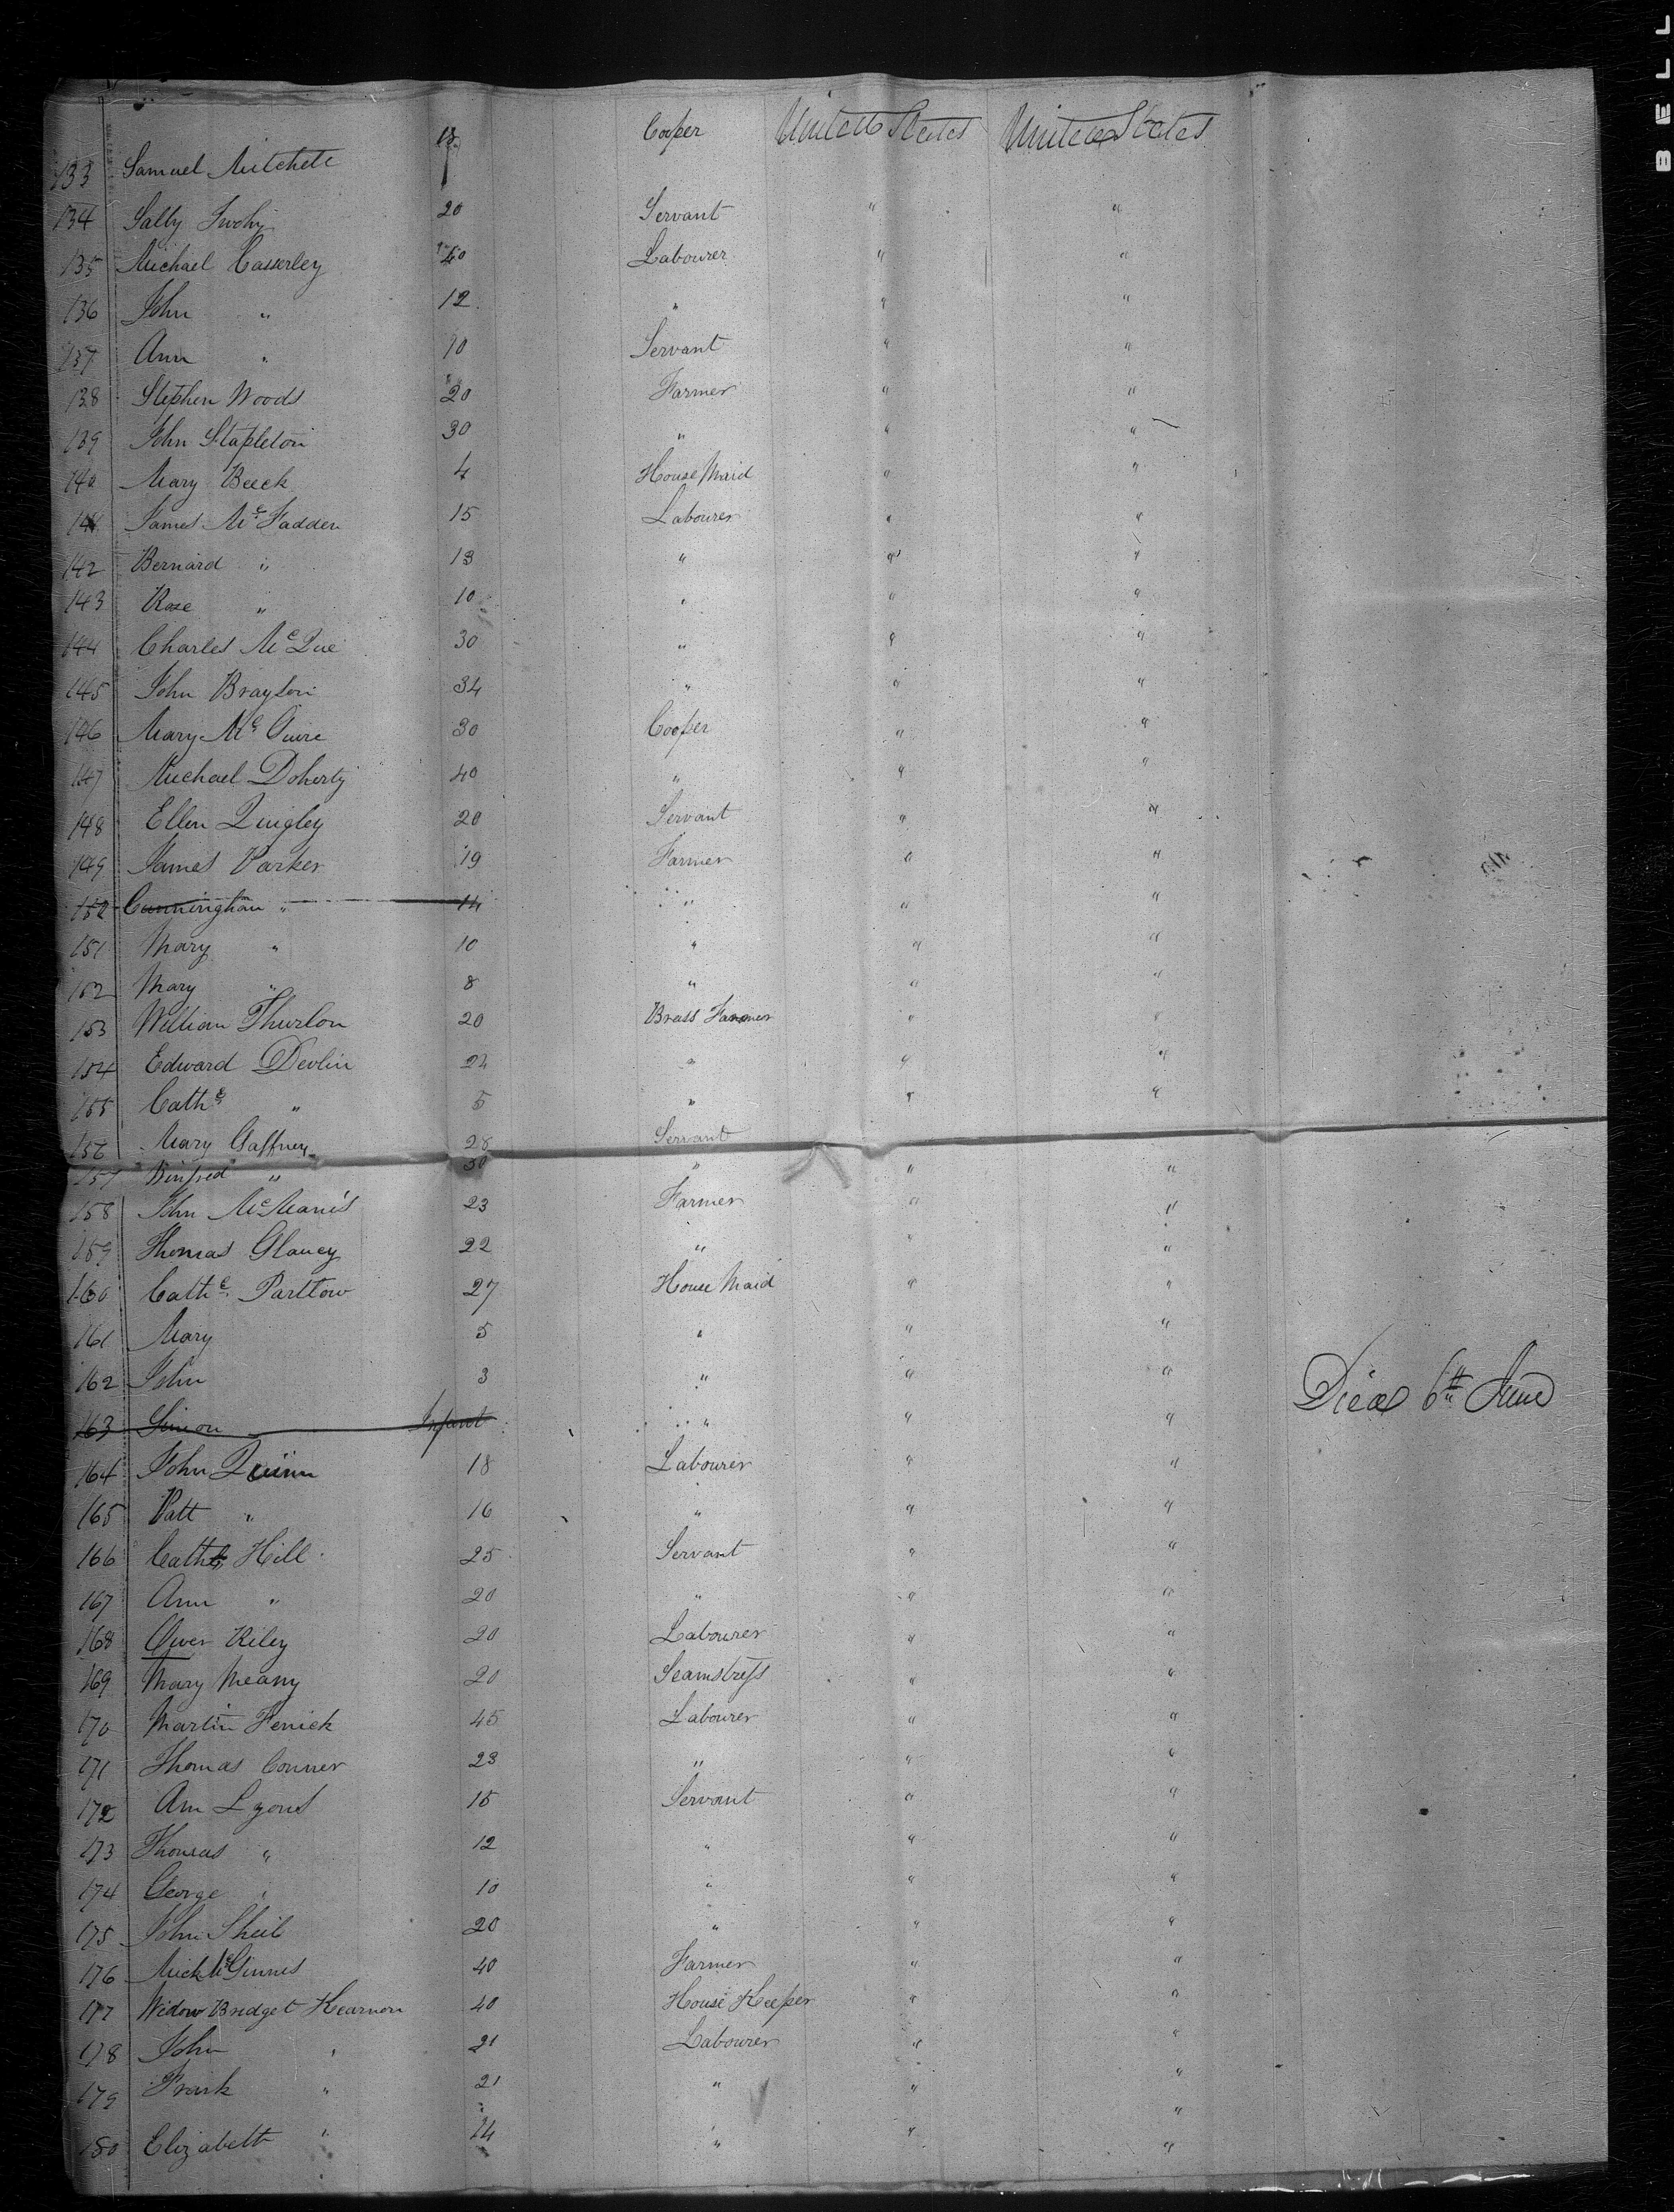 BELL
133 Samuel Mitchell 18 Cooper United States United States
134 Sally Twohy 20 Servant " "
135 Michael Casserley 40 Labourer " "
136 John " 12 " " "
137 Ann " 10 Servant " "
138 Stephen Woods 20 Farmer " "
139 John Stapleton 30 " " "
140 Mary Beeck 4 House Maid " "
141 James Mc Fadden 15 Labourer " "
142 Bernard " 13 " " "
143 Rose " 10 " " "
144 Charles Mc Que 30 " " "
145 John Brayson 34 " " "
146 Mary Mc Guire 30 Cooper " "
147 Michael Doherty 40 " " "
148 Ellen Quigley 20 Servant " "
149 James Parker 19 Farmer " "
152 Cunningham " 14 " " "
151 Mary " 10 " " "
152 Mary " 8 " " "
153 William Thurlon 20 Brass Farmer " "
154 Edward Devlin 24 " " "
155 Cathe " 5 " " "
156 Mary Gaffney 28 Servant
157 Winfred " 30 " " "
158 John McManis 23 Farmer " "
159 Thomas Glancy 22 " " "
160 Cathe Partlow 27 House Maid " "
161 Mary 5 " " "
162 John 3 " " "
163 Simon Infant " " " Died 6th June
164 John Quinn 18 Labourer " "
165 Patt " 16 " " "
166 Cathe Hill 25 Servant " "
167 Ann " 20 " " "
168 Owen Riley 20 Labourer " "
169 Mary Meany 20 Seamstress " "
170 Martin Ferrick 45 Labourer " "
171 Thomas Conner 23 " " "
172 Ann Lyons 15 Servant " "
173 Thomas " 12 " " "
174 George " 10 " " "
175 John Sheil 20 " " "
176 Mick McGinnes 40 Farmer " "
177 Widow Bridget Hearnon 40 House Keeper " "
178 John " 21 Labourer " "
179 Frank " 21 " " "
180 Elizabeth " 14 " " "